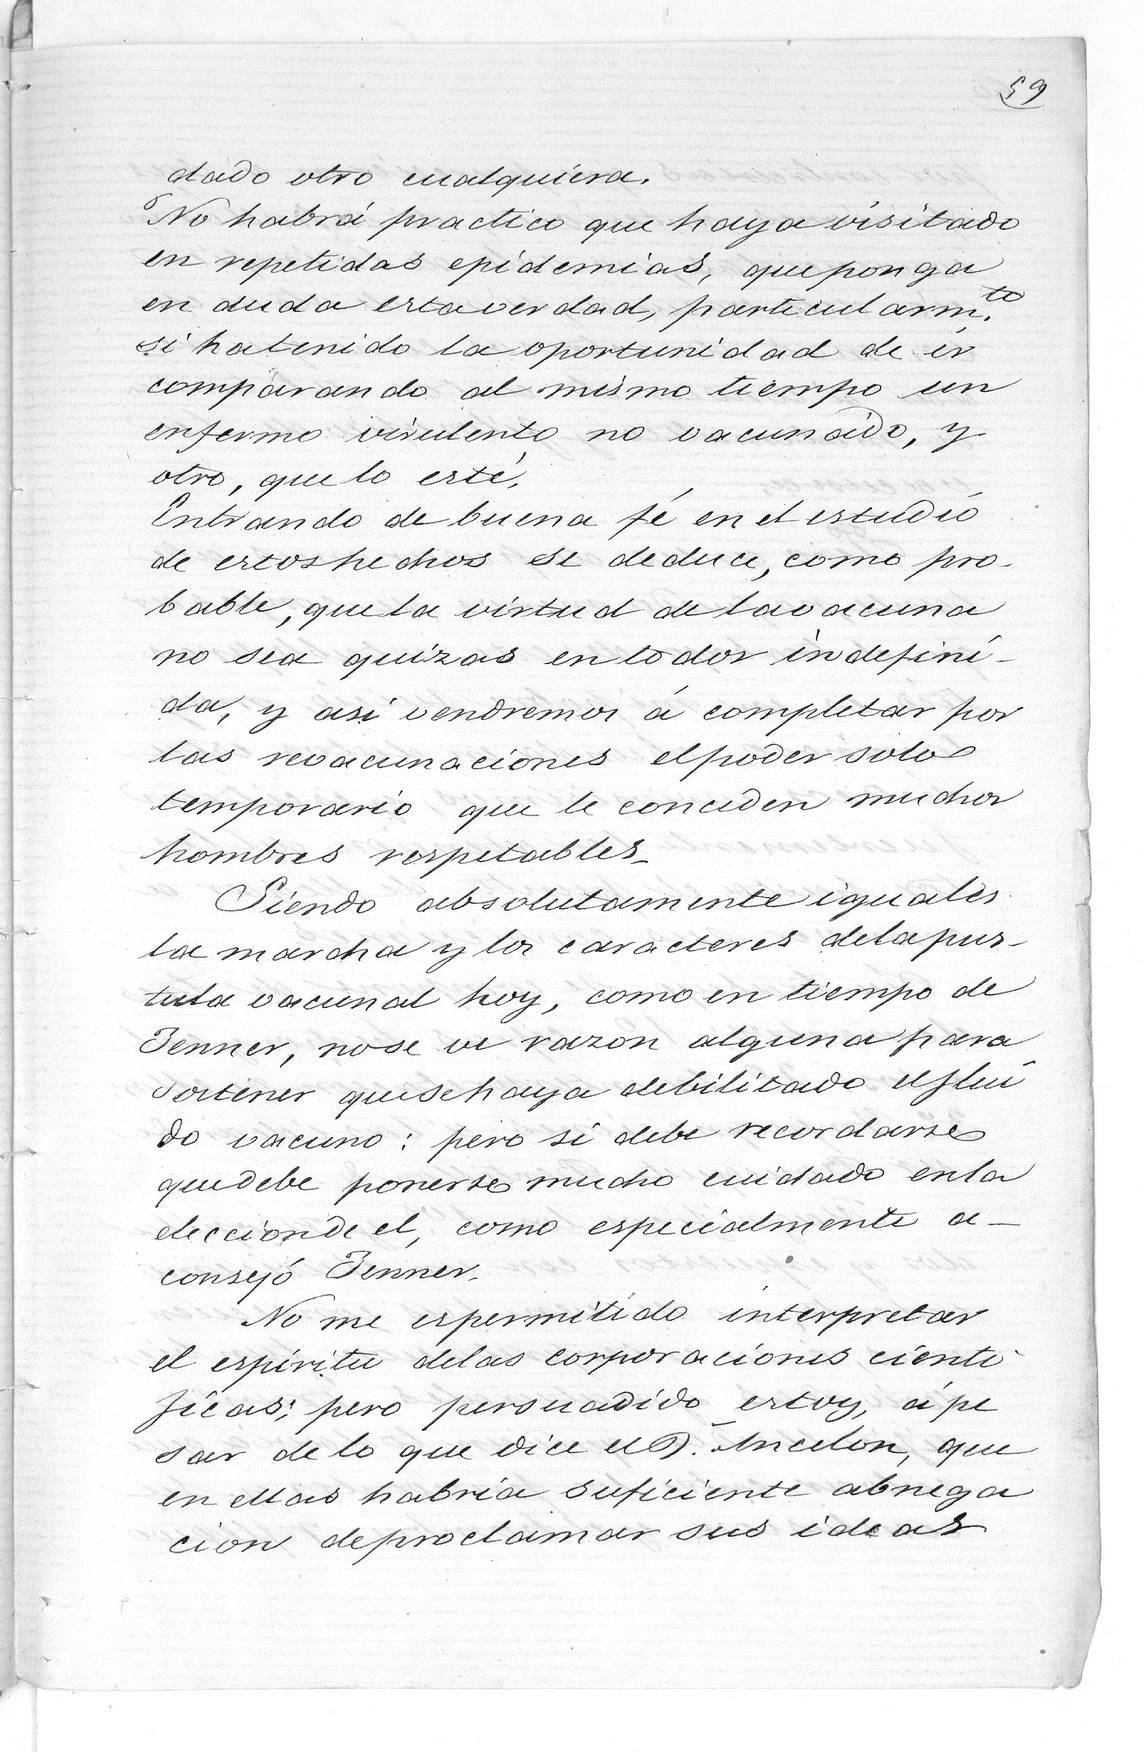 59
dado otro cualquiera.
No habrá practico que haya visitado
en repetidas epidemias, que ponga
en duda esta verdad, particularm.te
si ha tenido la oportunidad de ir
comparando al mismo tiempo un
enfermo virulento no vacunado, y
otro, que lo esté.
Entrando de buena fé en el estudio
de estos hechos se deduce, como pro-
bable, que la virtud de la vacuna
no sea quizas en todos indefini-
da, y asi vendremos á completar por
las revacunaciones el poder solo
temporario que le conceden muchos
hombres respetables_
Siendo absolutamente iguales
la marcha y los caracteres de la pus-
tula vacunal hoy, como en tiempo de
Jenner, no se ve razon alguna para
sostener que se haya debilitado el flui
do vacuno: pero si debe recordarse
que debe ponerse mucho cuidado en la
eleccion de el, como especialmente a-
consejó Jenner.
No me es permitido interpretar
el espiritu de las corporaciones cienti
ficas; pero persuadido estoy, á pe
sar de lo que dice el D. Ancelon, que
en ellas habria suficiente abnega
cion de proclamar sus ideas